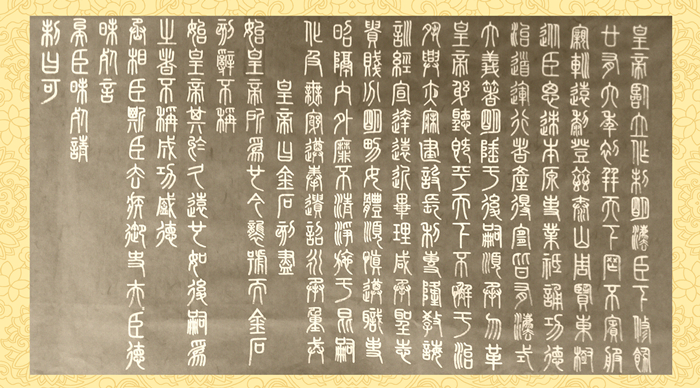 皇帝臨立作制明法臣下脩飭
廿有六年初并天下罔不賓服
寴巡遠黎登茲泰山周覽東極
從臣思迹本原事業祗誦功德
治道運行者產得宜皆有法式
大義著明陲于後嗣順承勿革
皇帝躬聽既平天下不懈于治
夙興夜寐建設長利專隆教誨
訓經宣達遠近畢理咸承聖志
貴賤分明男女體順慎遵職事
昭隔內外靡不清淨施于昆嗣
化及無窮遵奉遺詔永承重戒
皇帝曰金石刻盡
始皇帝所為也今襲號而金石
刻辭不稱
始皇帝其於久遠也如後嗣為
之者不稱成功盛德
丞相臣斯臣去疾御史夫臣德
昧死言
臣昧死請
制曰可